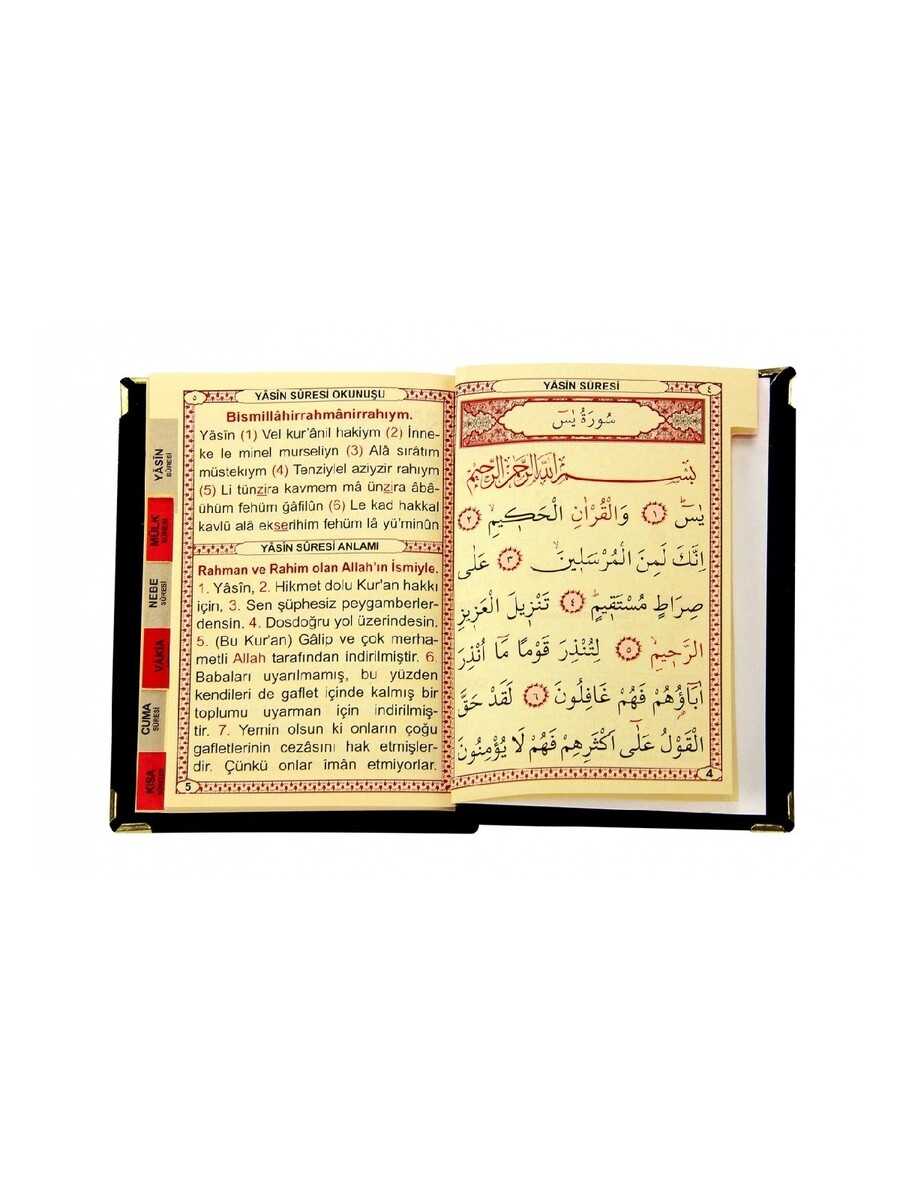 YÂSÎN SÛRESİ
٤
سُورَةُ يٰسٓ
بِسْمِ اللّٰهِ الرَّحْمٰنِ الرَّحِيمِ
يٰسٓ ﴿١﴾ وَالْقُرْاٰنِ الْحَكِيمِ ﴿٢﴾
اِنَّكَ لَمِنَ الْمُرْسَلِينَ ﴿٣﴾ عَلٰى
صِرَاطٍ مُسْتَقِيمٍ ﴿٤﴾ تَنْزِيلَ الْعَزِيزِ
الرَّحِيمِ ﴿٥﴾ لِتُنْذِرَ قَوْمًا مَٓا اُنْذِرَ
اٰبَٓاؤُ۬هُمْ فَهُمْ غَافِلُونَ ﴿٦﴾ لَقَدْ حَقَّ
الْقَوْلُ عَلٰٓى اَكْثَرِهِمْ فَهُمْ لَا يُؤْمِنُونَ
4
٥
YÂSÎN SÛRESİ OKUNUŞU
Bismillâhirrahmânirrahıym.
Yâsîn (1) Vel kur'ânil hakiym (2) İnne-
ke le minel murseliyn (3) Alâ sırâtım
müstekıym (4) Tenziylel aziyzir rahıym
(5) Li tünzira kavmem mâ ünzira âbâ-
ühüm fehüm ğafilûn (6) Le kad hakkal
kavlü alâ ekserihim fehüm lâ yü'minûn
YÂSÎN SÛRESİ ANLAMI
Rahman ve Rahim olan Allah'ın İsmiyle.
1. Yâsîn, 2. Hikmet dolu Kur'an hakkı
için, 3. Sen şüphesiz peygamberler-
densin. 4. Dosdoğru yol üzerindesin.
5. (Bu Kur'an) Gâlip ve çok merha-
metli Allah tarafından indirilmiştir. 6.
Babaları uyarılmamış, bu yüzden
kendileri de gaflet içinde kalmış bir
toplumu uyarman için indirilmiş-
tir. 7. Yemin olsun ki onların çoğu
gafletlerinin cezâsını hak etmişler-
dir. Çünkü onlar imân etmiyorlar.
5
YÂSİN
SÛRESİ
MÜLK
SÛRESİ
NEBE
SÛRESİ
VÂKIA
CUMA
SÛRESİ
KISA